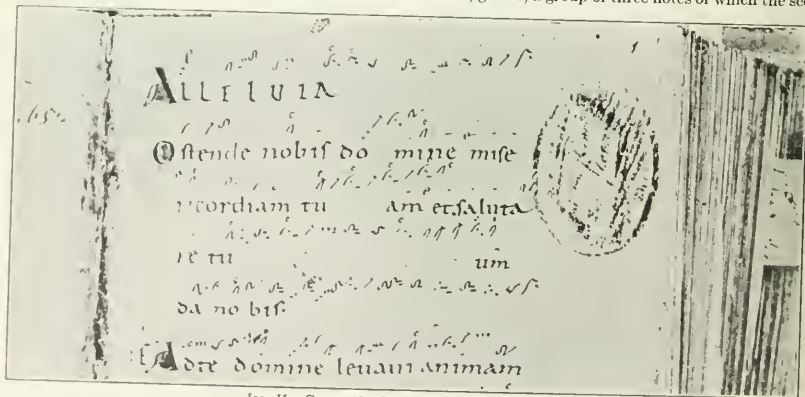 a group of three notes of which the
ALLELUIA
Ostende nobis do mine mise
ricordiam tu am et saluta
re tu um
da no bis.
Ad te domine levavi animam